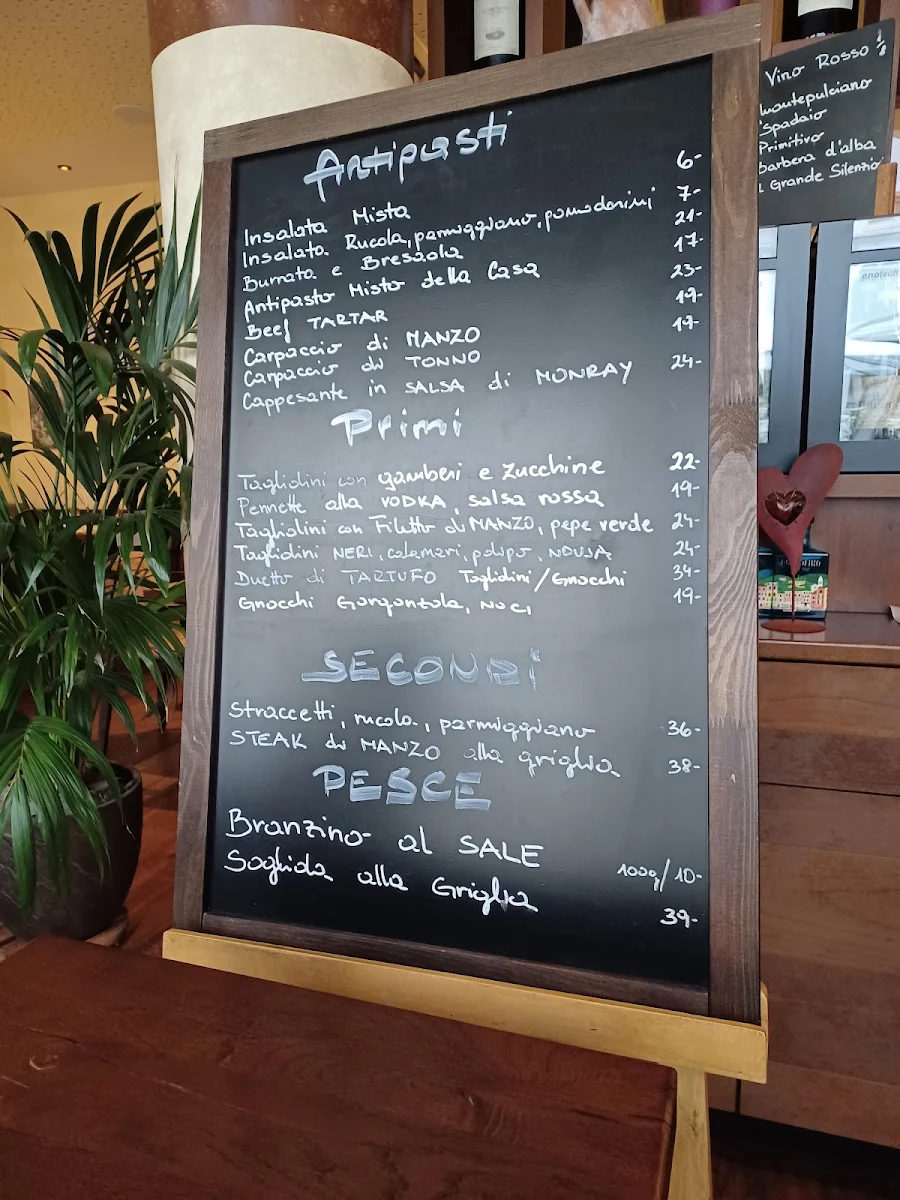 Antipasti
Insalata Mista 6-
Insalata Rucola, parmiggiano, pomodorini 7-
Burrata e Bresaola 21-
Antipasto Misto della Casa 17-
Beef TARTAR 23-
Carpaccio di MANZO 19-
Carpaccio di TONNO 19-
Cappesante in SALSA di MONRAY 24-
Primi
Tagliolini con gamberi e zucchine 22-
Pennette alla VODKA, salsa rossa 19-
Tagliolini con Filetto di MANZO, pepe verde 24-
Tagliolini NERI, calamari, polipo, NDUJA 24-
Duetto di TARTUFO Tagliolini/Gnocchi 34-
Gnocchi Gorgonzola, NOCI 19-
SECONDI
Straccetti, rucola, parmiggiano 36-
STEAK di MANZO alla griglia 38-
PESCE
Branzino al SALE 100g/10-
Sogliola alla Griglia 39-
Vino Rosso
Montepulciano
Spadaio
Primitivo
barbera d'alba
Grande Silenzio
enotech